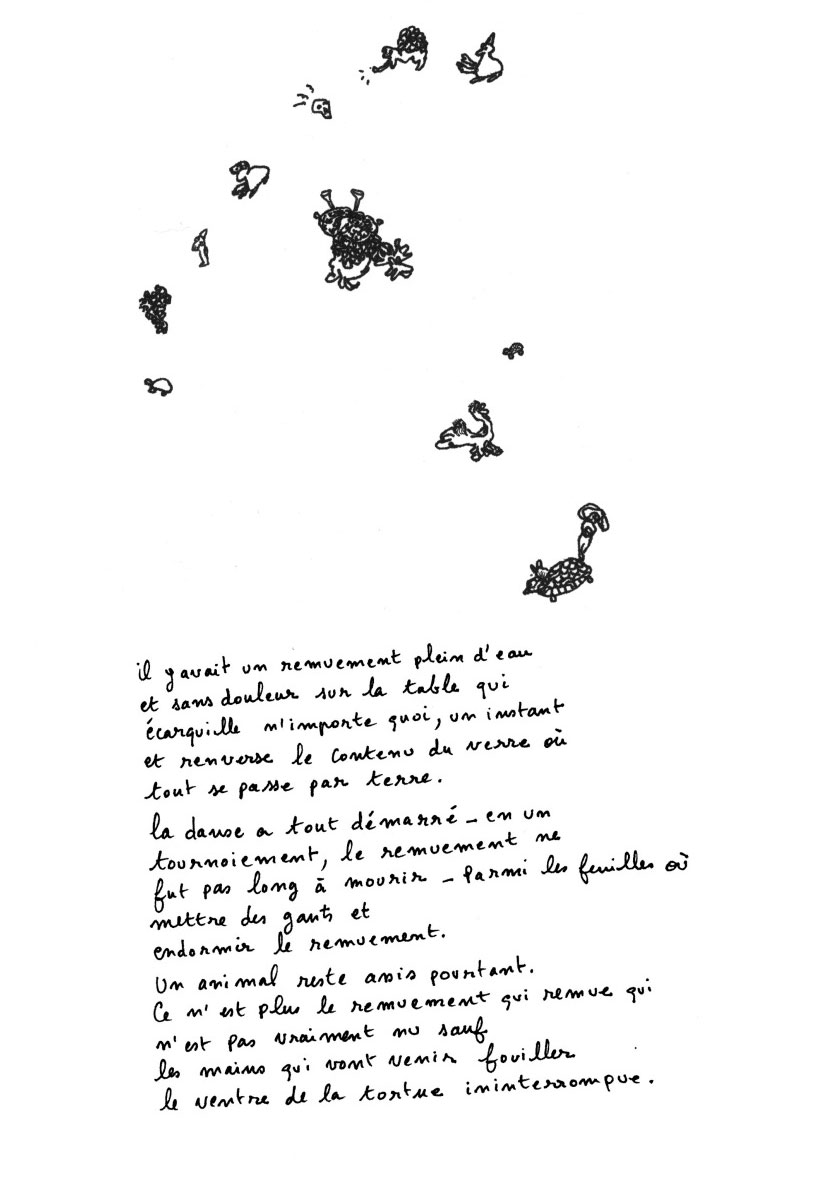 il y avait un remuement plein d'eau
et sans douleur sur la table qui
écarquille n'importe quoi, un instant
et renverse le contenu du verre où
tout se passe par terre.
la danse a tout démarré – en un
tournoiement, le remuement ne
fut pas long à mourir – parmi les feuilles où
mettre des gants et
endormir le remuement.
Un animal reste assis pourtant.
Ce n'est plus le remuement qui remue qui
n'est pas vraiment nu sauf
les mains qui vont venir fouiller
le ventre de la tortue ininterrompue.